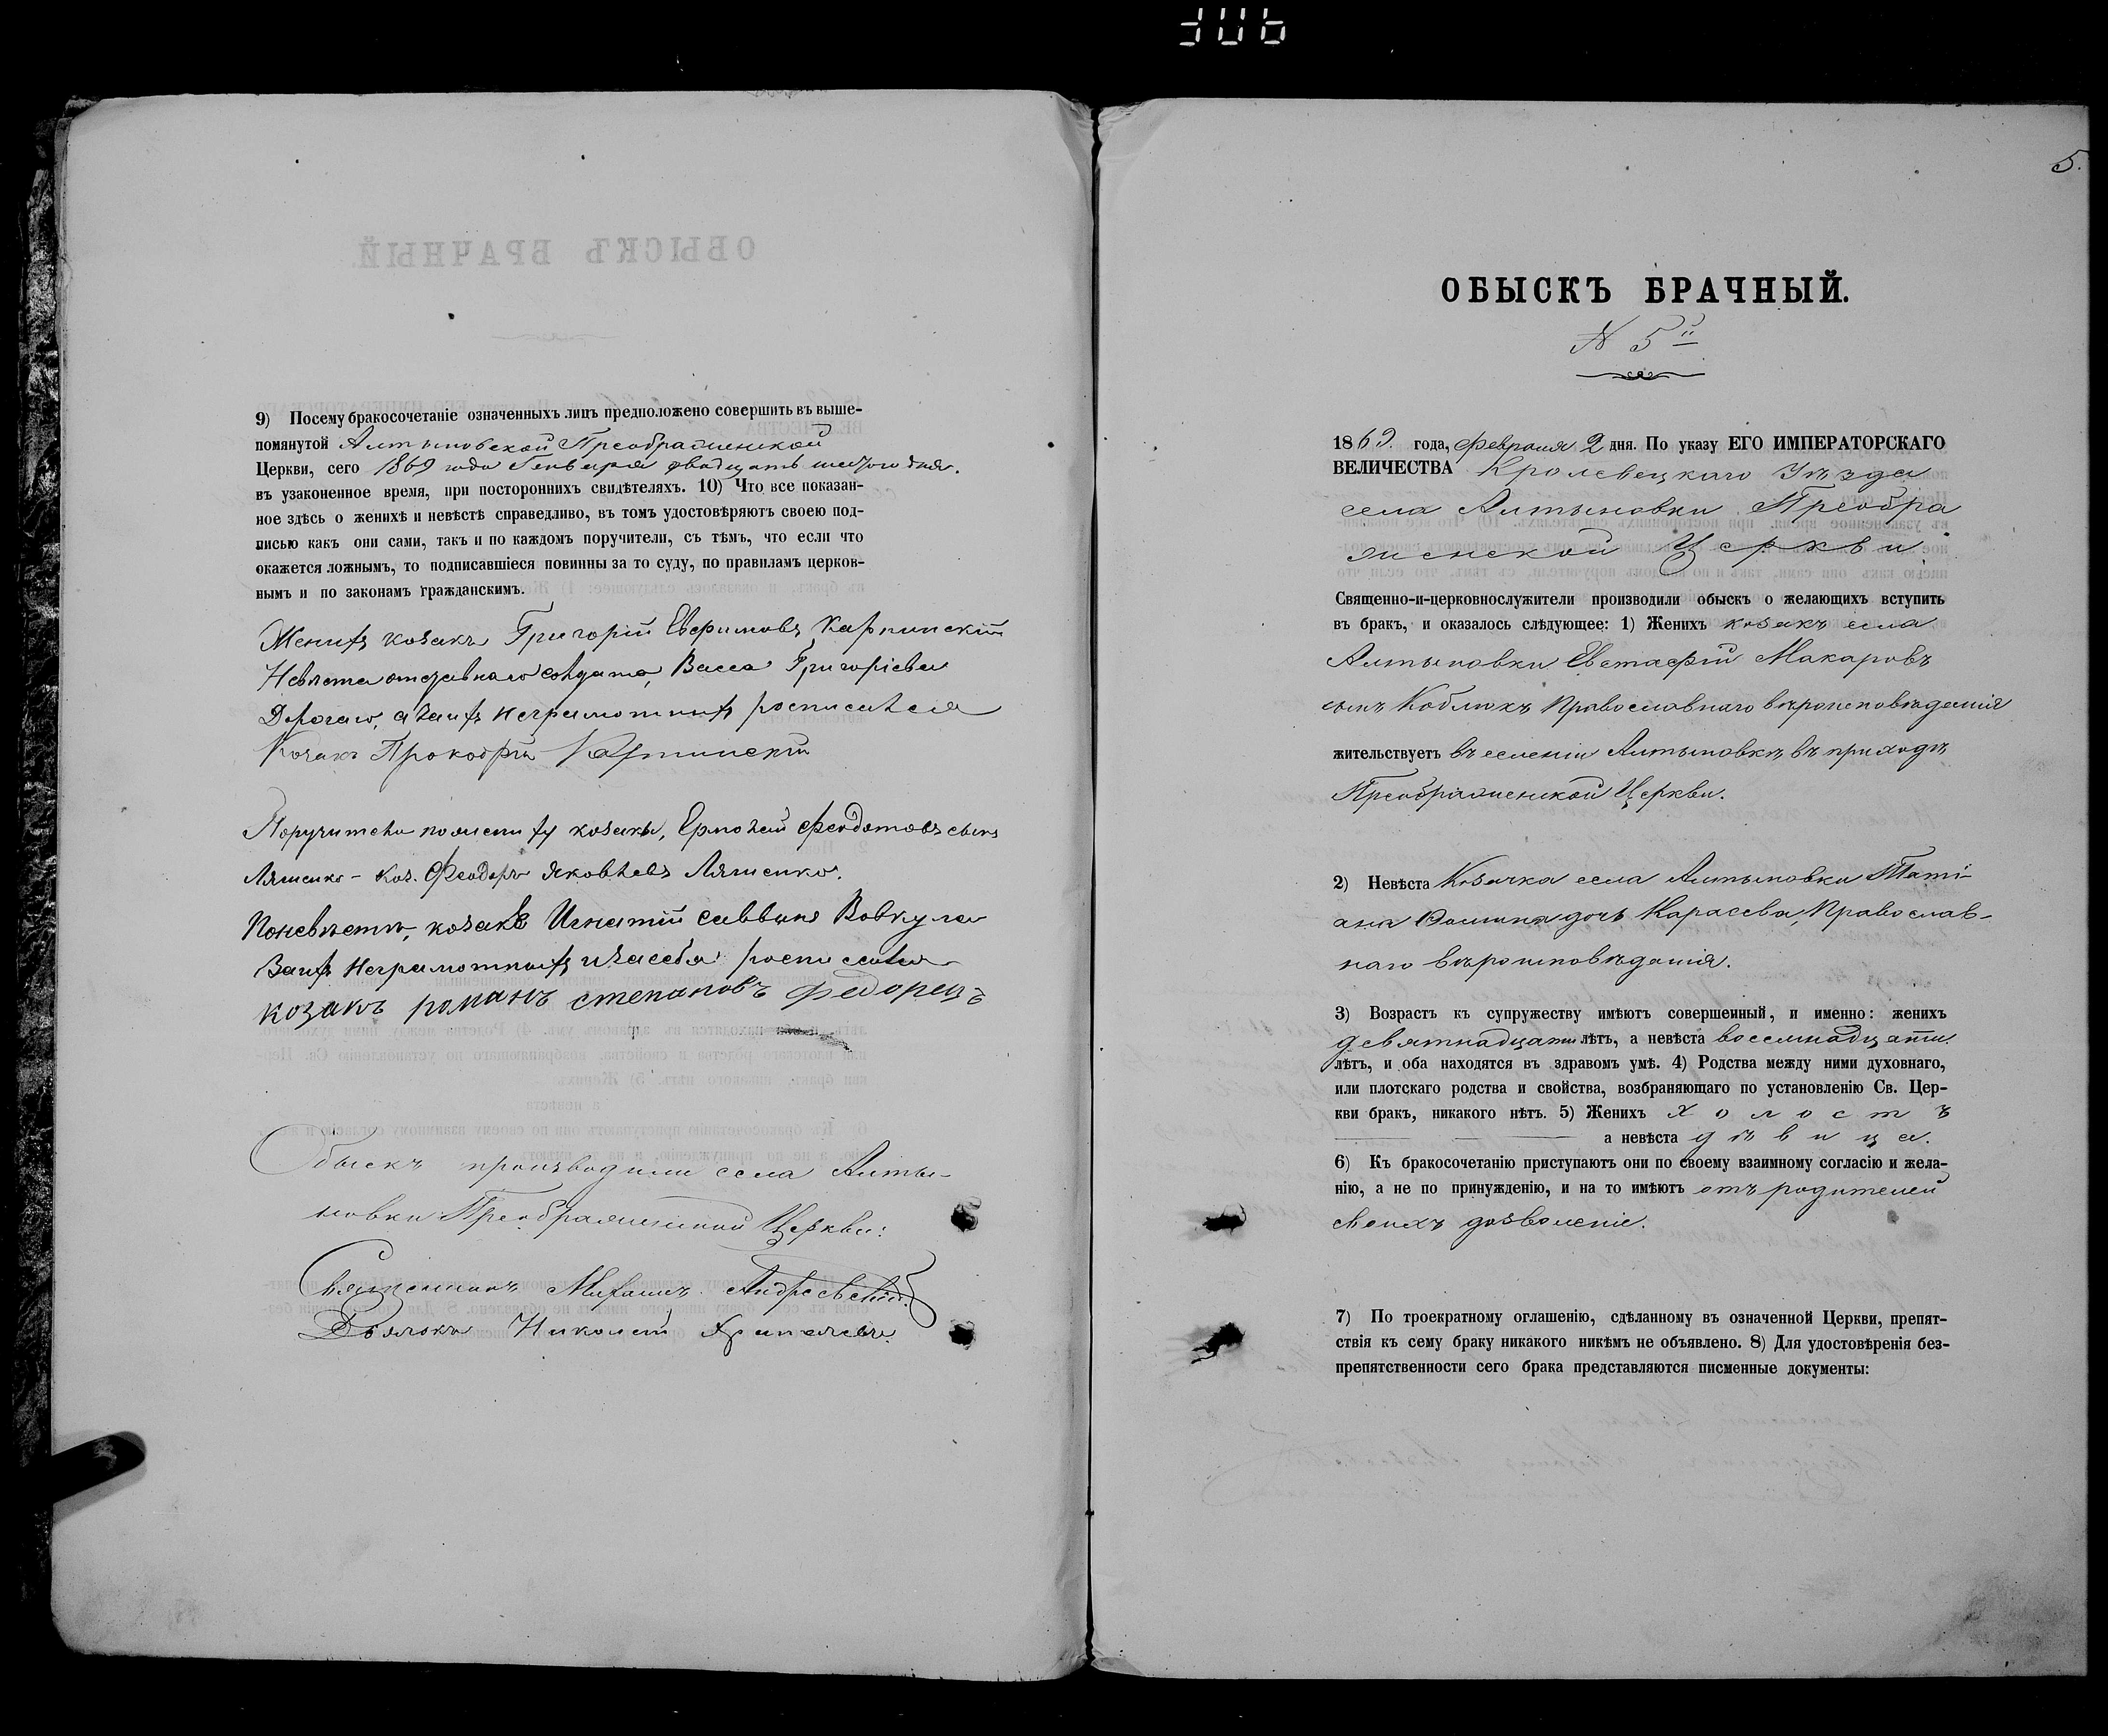 9) Посему бракосочетаніе означенныхъ лицъ предположено совершить въ выше-
помянутой Алтыновской Преображенской
Церкви, сего 1869 года Генваря двадцать шестого дня.
въ узаконенное время, при постороннихъ свидѣтеляхъ. 10) Что все показан-
ное здѣсь о женихѣ и невѣстѣ справедливо, въ томъ удостовѣряютъ своею под-
писью какъ они сами, такъ и по каждомъ поручители, съ тѣмъ, что если что
окажется ложнымъ, то подписавшіеся повинны за то суду, по правиламъ церков-
нымъ и по законамъ гражданскимъ.
Женихъ козакъ Григорій Евфимовъ Карпинскій
Невѣста отставнаго солдата, Васса Григоріева
неграмотныхъ росписался
Козакъ Прокофій Карпинскій
Поручители по женихѣ козаки, Ермолай Феодотовъ сынъ
Ляшенко - коз. Феодоръ Яковлевъ Ляшенко.
По невѣстѣ, козаки Игнатій Саввинъ Вовкула
За ихъ неграмотныхъ и за себя росписался
козакъ романъ степановъ федорецъ
Обыскъ производили села Алты-
новки Преображенской Церкви:
Священникъ Михаилъ Андреевскій.
Дьячокъ Николай
5.
ОБЫСКЪ БРАЧНЫЙ.
N 5й
1869. года, Февраля 2 дня. По указу ЕГО ИМПЕРАТОРСКАГО
ВЕЛИЧЕСТВА Кролевецкаго Уѣзда
села Алтыновки Преобра
женской Церкви
Священно-и-церковнослужители производили обыскъ о желающихъ вступить
въ бракъ, и оказалось слѣдующее: 1) Женихъ козакъ села
Алтыновки Евстафій Макаровъ
сынъ Коблюкъ Православнаго вѣроисповѣданія
жительствуетъ въ селеніи Алтыновкѣ, въ приходѣ
Преображенской Церкви.
2) Невѣста Козачка села Алтыновки Таті-
ана дочь Карасева, Православ-
наго вѣроисповѣданія.
3) Возрастъ къ супружеству имѣютъ совершенный, и именно: женихъ
девятнадцати лѣтъ, а невѣста восемнадцати
лѣтъ, и оба находятся въ здравомъ умѣ. 4) Родства между ними духовнаго,
или плотскаго родства и свойства, возбраняющаго по установленію Св. Цер-
кви бракъ, никакого нѣтъ. 5) Женихъ холостъ
а невѣста дѣвица.
6) Къ бракосочетанію приступаютъ они по своему взаимному согласію и жела-
нію, а не по принужденію, и на то имѣютъ отъ родителей
своихъ дозволеніе.
7) По троекратному оглашенію, сдѣланному въ означенной Церкви, препят-
ствія къ сему браку никакого никѣмъ не объявлено. 8) Для удостовѣренія без-
препятственности сего брака представляются писменные документы: